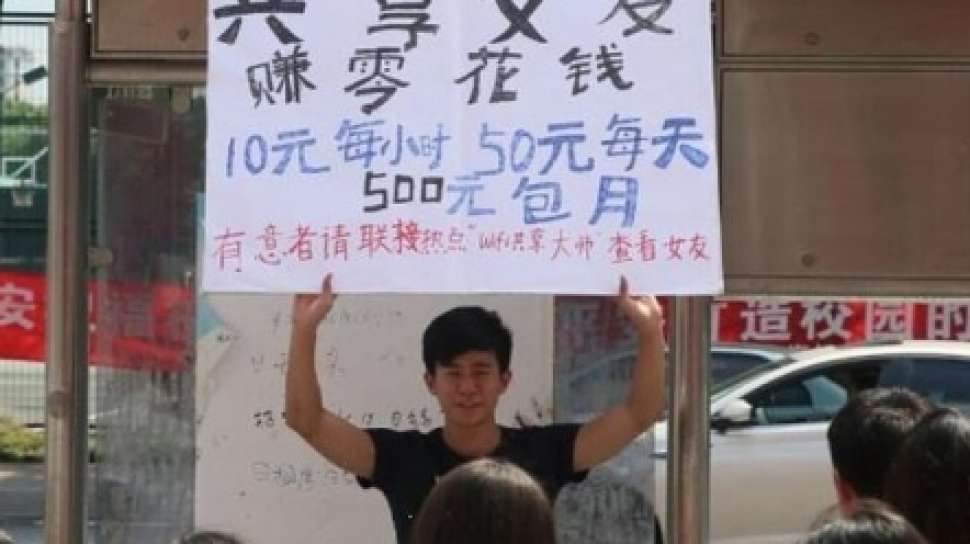 共享女友
赚零花钱
10元每小时 50元每天
500元包月
有意者请联接热点"wifi共享大师 查看女友
造校园的
安